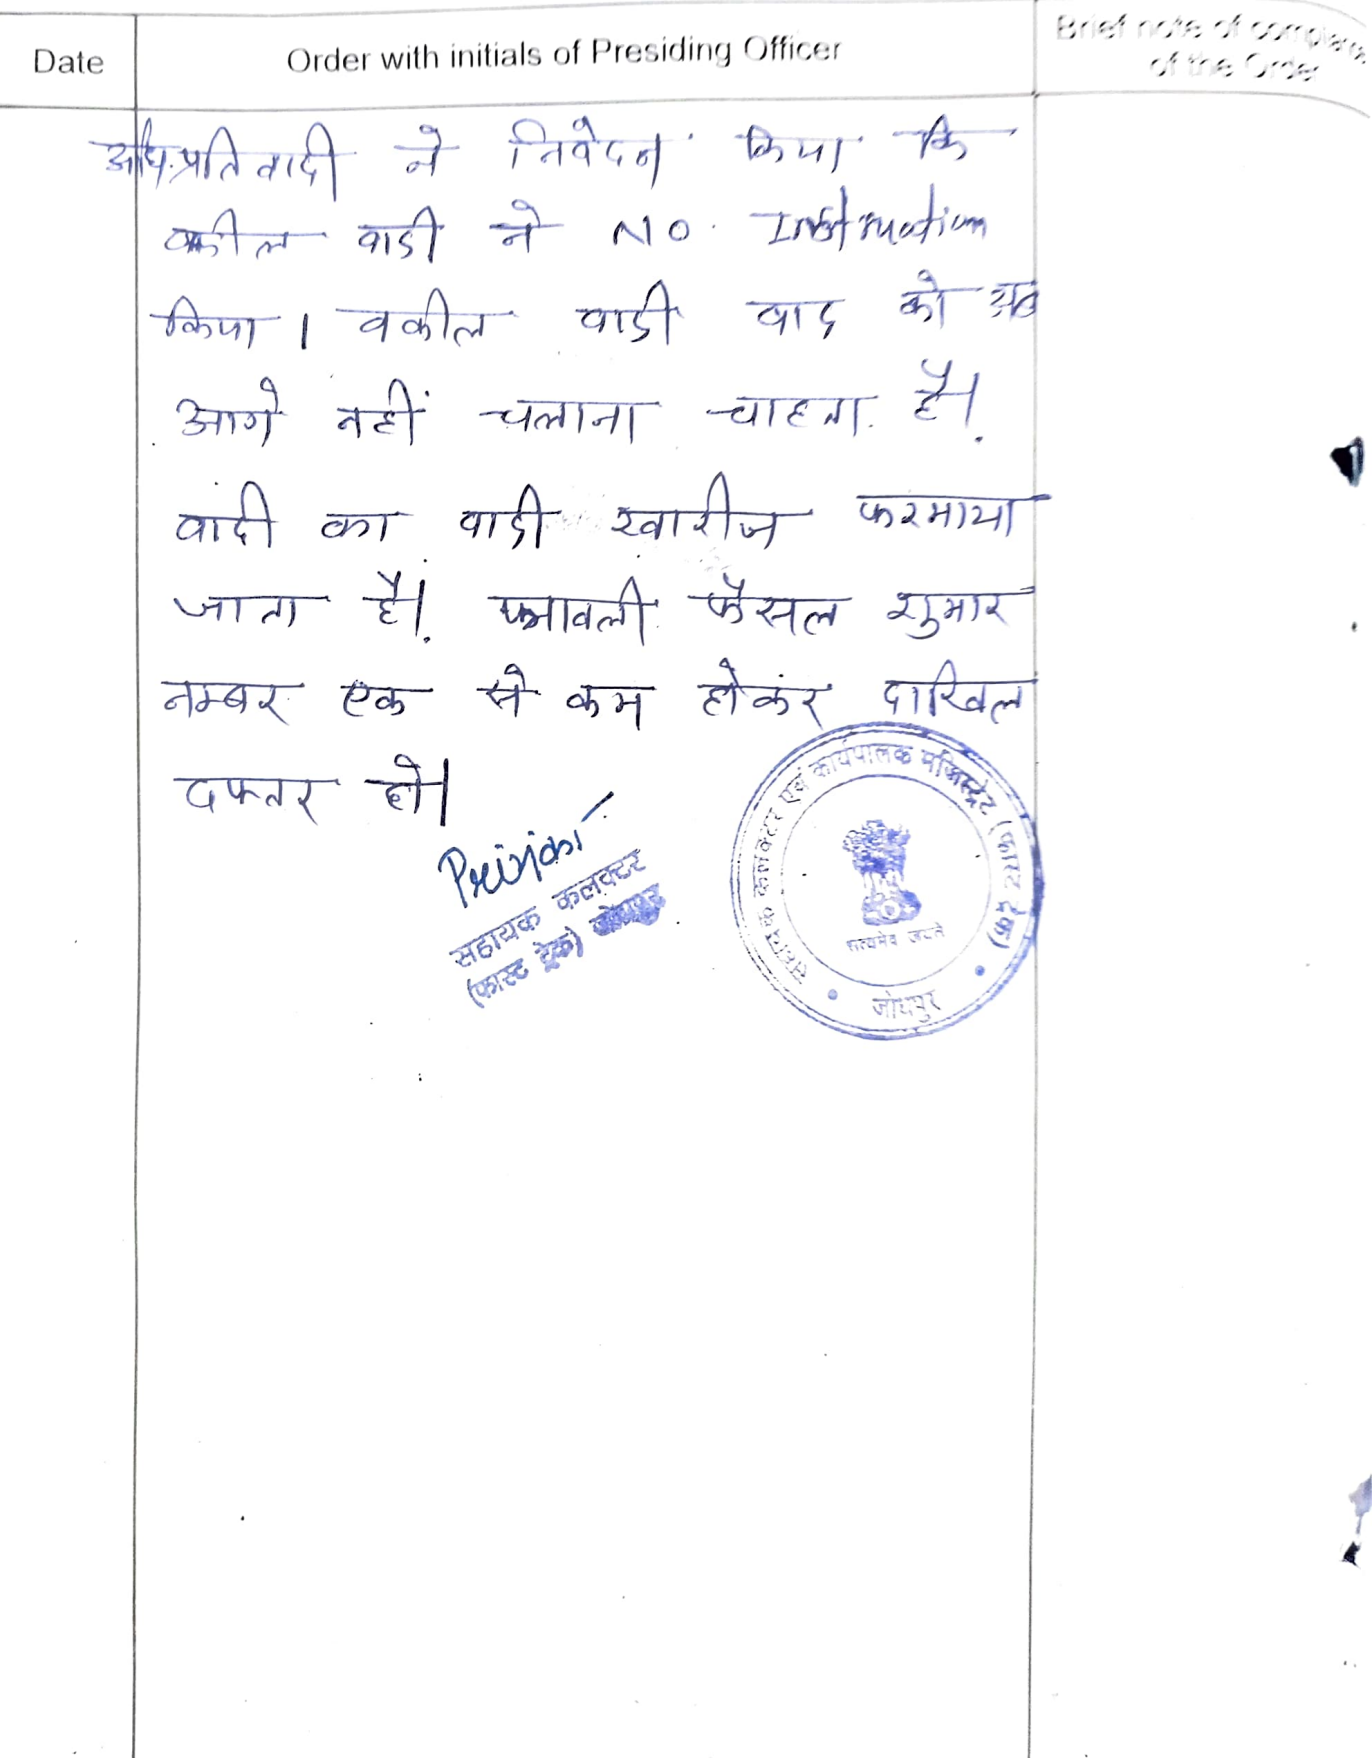 Date
Order with initials of Presiding Officer
Brief note of
of the Order
अधि.प्रतिवादी ने निवेदन किया कि
वकील वादी ने No. Instruction
किया । वकील वादी वाद को अब
आगे नहीं चलाना चाहता है।
वादी का वादी खारीज फरमाया
जाता है। पत्रावली फैसल शुमार
नम्बर एक से कम होकर दाखिल
दफ्तर हो।
सहायक कलक्टर
(फास्ट ट्रेक) जोधपुर
सहायक कलक्टर एवं कार्यपालक मजिस्ट्रेट (फास्ट ट्रेक)
सत्यमेव जयते
जोधपुर